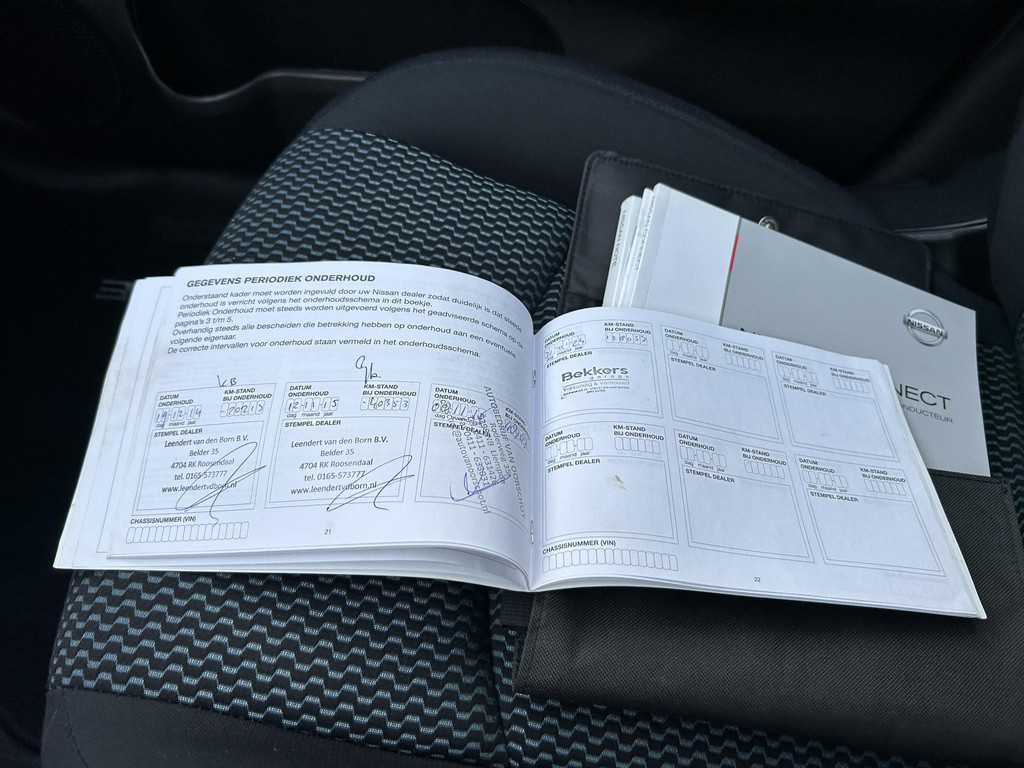 GEGEVENS PERIODIEK ONDERHOUD
Onderstaand kader moet worden ingevuld door uw Nissan dealer zodat duidelijk is dat steeds
onderhoud is verricht volgens het onderhoudsschema in dit boekje.
Periodiek Onderhoud moet steeds worden uitgevoerd volgens het geadviseerde schema op de
pagina's 3 t/m 5.
Overhandig steeds alle bescheiden die betrekking hebben op onderhoud aan een eventuele
volgende eigenaar.
De correcte intervallen voor onderhoud staan vermeld in het onderhoudsschema.
DATUM ONDERHOUD
KM-STAND BIJ ONDERHOUD
19-12-14
-20213
dag maand jaar
STEMPEL DEALER
Leendert van den Born B.V.
Belder 35
4704 RK Roosendaal
tel. 0165-573777
www.leendertvdborn.nl
DATUM ONDERHOUD
KM-STAND BIJ ONDERHOUD
12-11-15
-40353
dag maand jaar
STEMPEL DEALER
Leendert van den Born B.V.
Belder 35
4704 RK Roosendaal
tel. 0165-573777
www.leendertvdborn.nl
DATUM
ONDERHOUD
KM-STAND
STEMPEL DEALER
AUTOBEDRIJF VAN OORSCHOT
CHASSISNUMMER (VIN)
21
DATUM
ONDERHOUD
KM-STAND
BIJ ONDERHOUD
dag maand jaar
STEMPEL DEALER
Bekkers
garage
DATUM
ONDERHOUD
KM-STAND
BIJ ONDERHOUD
dag maand jaar
STEMPEL DEALER
DATUM
ONDERHOUD
KM-STAND
BIJ ONDERHOUD
dag maand jaar
STEMPEL DEALER
DATUM
ONDERHOUD
KM-STAND
BIJ ONDERHOUD
dag maand jaar
STEMPEL DEALER
DATUM
ONDERHOUD
KM-STAND
BIJ ONDERHOUD
dag maand jaar
STEMPEL DEALER
DATUM
ONDERHOUD
KM-STAND
BIJ ONDERHOUD
dag maand jaar
STEMPEL DEALER
CHASSISNUMMER (VIN)
22
NISSAN
NECT
NDUCTEUR